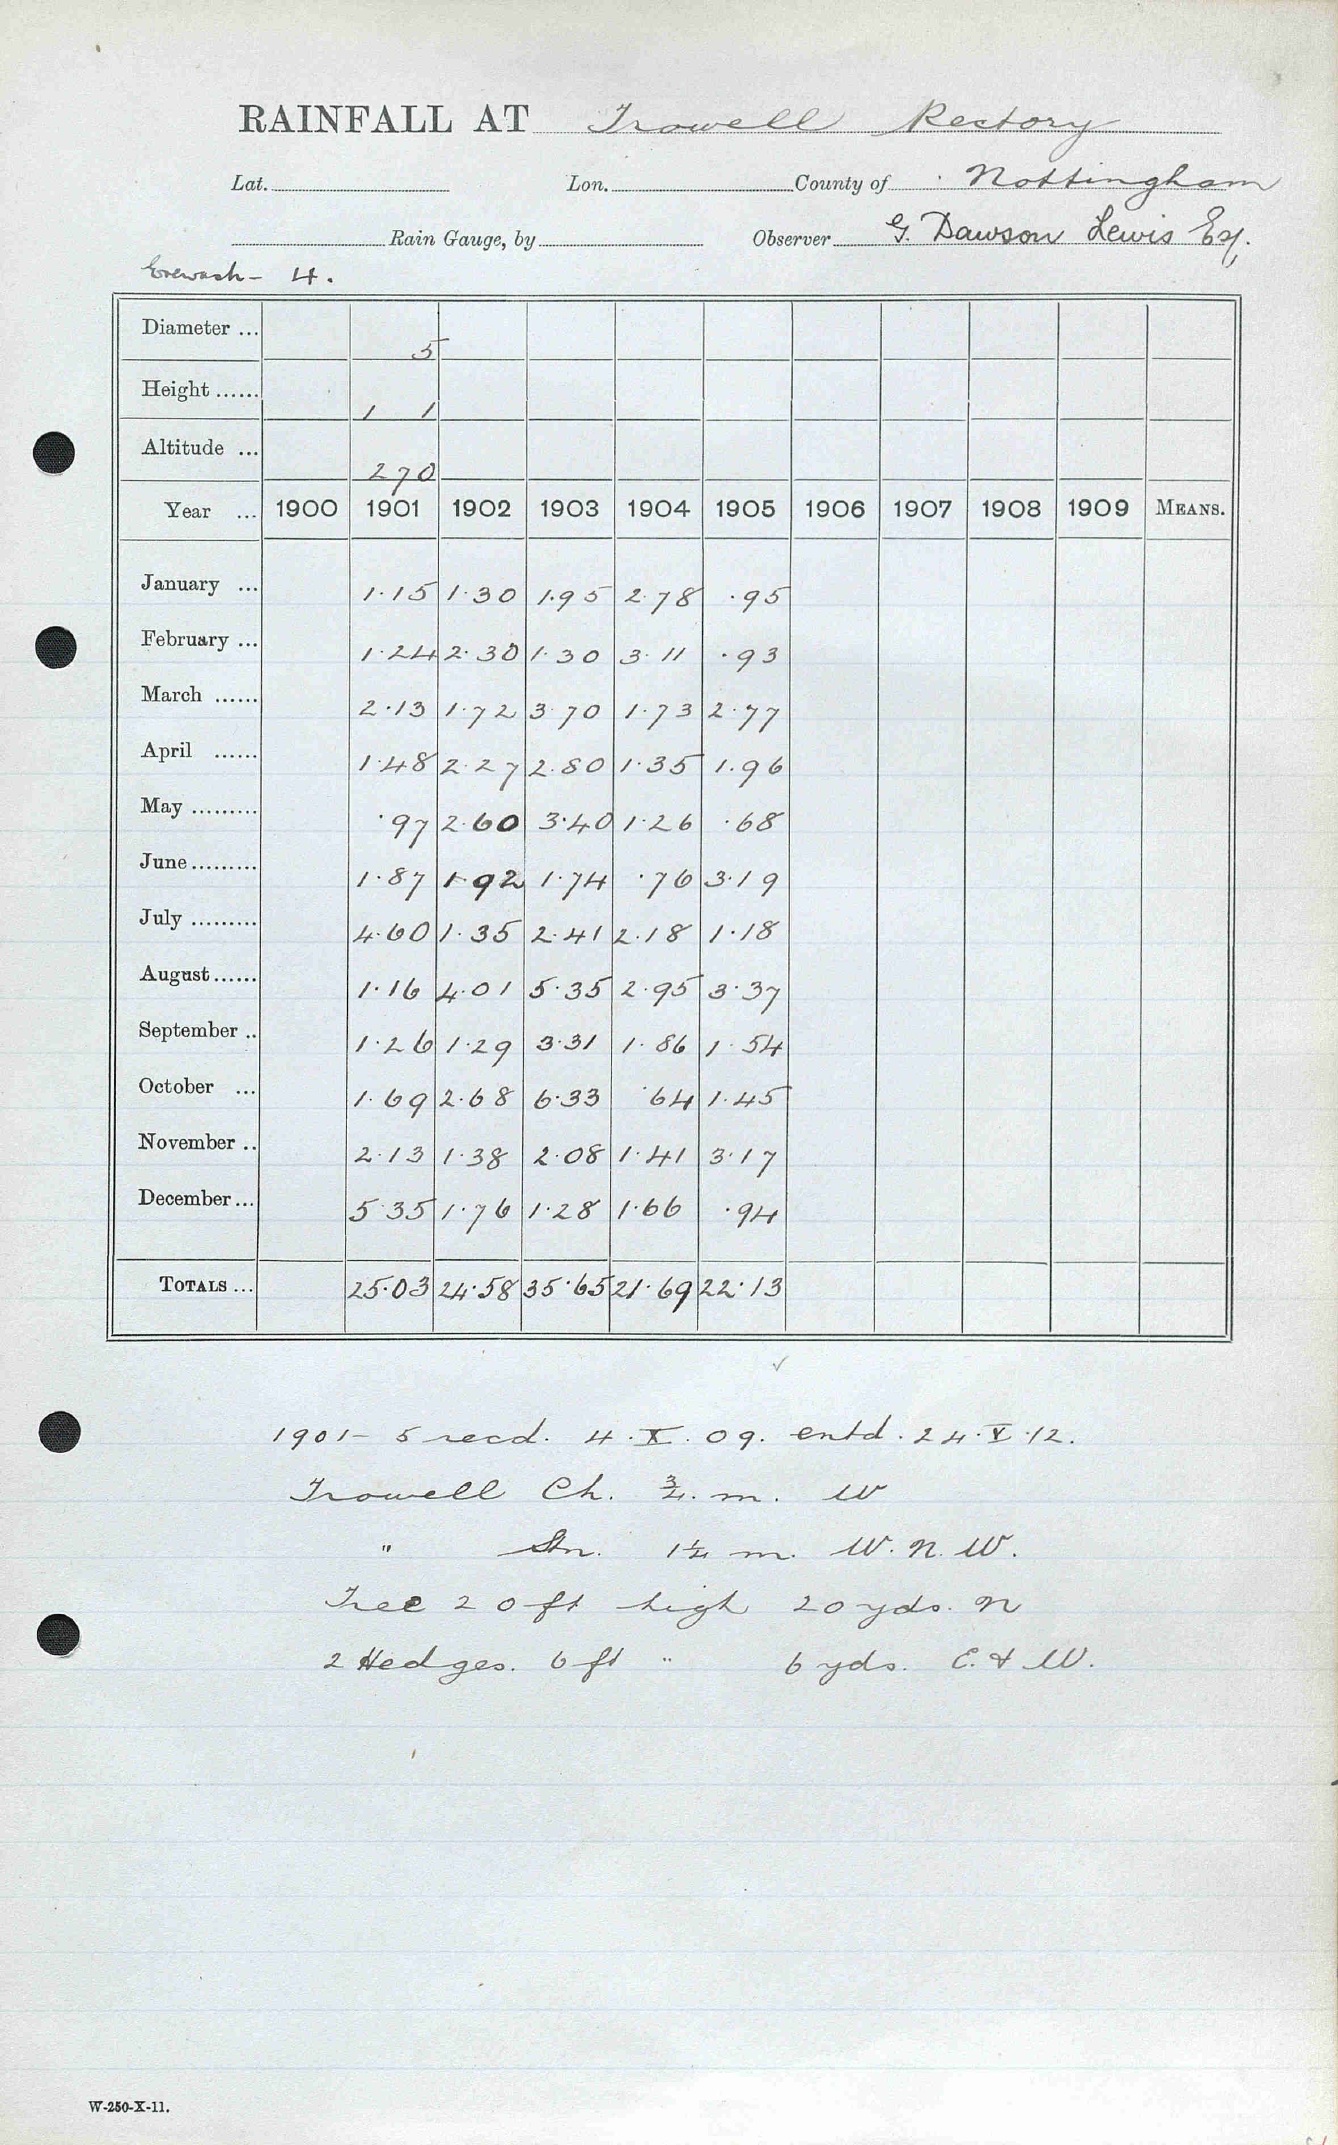 RAINFALL AT Trowell Rectory
Lat. Lon. County of Nottingham
Rain Gauge, by Observer G. Dawson Lewis Esq.
Erewash - 4.
Diameter ... 5
Height ...... 1 1
Altitude ... 270
Year ... 1900 1901 1902 1903 1904 1905 1906 1907 1908 1909 MEANS.
January ... 1.15 1.30 1.95 2.78 .95
February ... 1.24 2.30 1.30 3.11 .93
March ...... 2.13 1.72 3.70 1.73 2.77
April ...... 1.48 2.27 2.80 1.35 1.96
May ......... .97 2.60 3.40 1.26 .68
June ......... 1.87 1.92 1.74 .76 3.19
July ......... 4.60 1.35 2.41 2.18 1.18
August ...... 1.16 4.01 5.35 2.95 3.37
September .. 1.26 1.29 3.31 1.86 1.54
October ... 1.69 2.68 6.33 .64 1.45
November .. 2.13 1.38 2.08 1.41 3.17
December ... 5.35 1.76 1.28 1.66 .94
TOTALS ... 25.03 24.58 35.65 21.69 22.13
✓
1901-5 recd. 4.X.09. entd. 24.V.12.
Trowell Ch. ¾ m. W
" Stn. 1¼ m. W.N.W.
Tree 20 ft high 20 yds. N
2 Hedges. 6 ft " 6 yds. E. & W.
W-250-X-11.